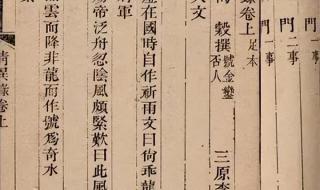 門二事
門一事
錄卷上 足本
穀撰 號金鑾否人 三原李
天文
虛在國時自作祈雨文曰尚乖龍
將軍
煬帝泛舟忽陰風頗緊歎曰此風
雲而降非龍而作號為奇水
清異錄卷上